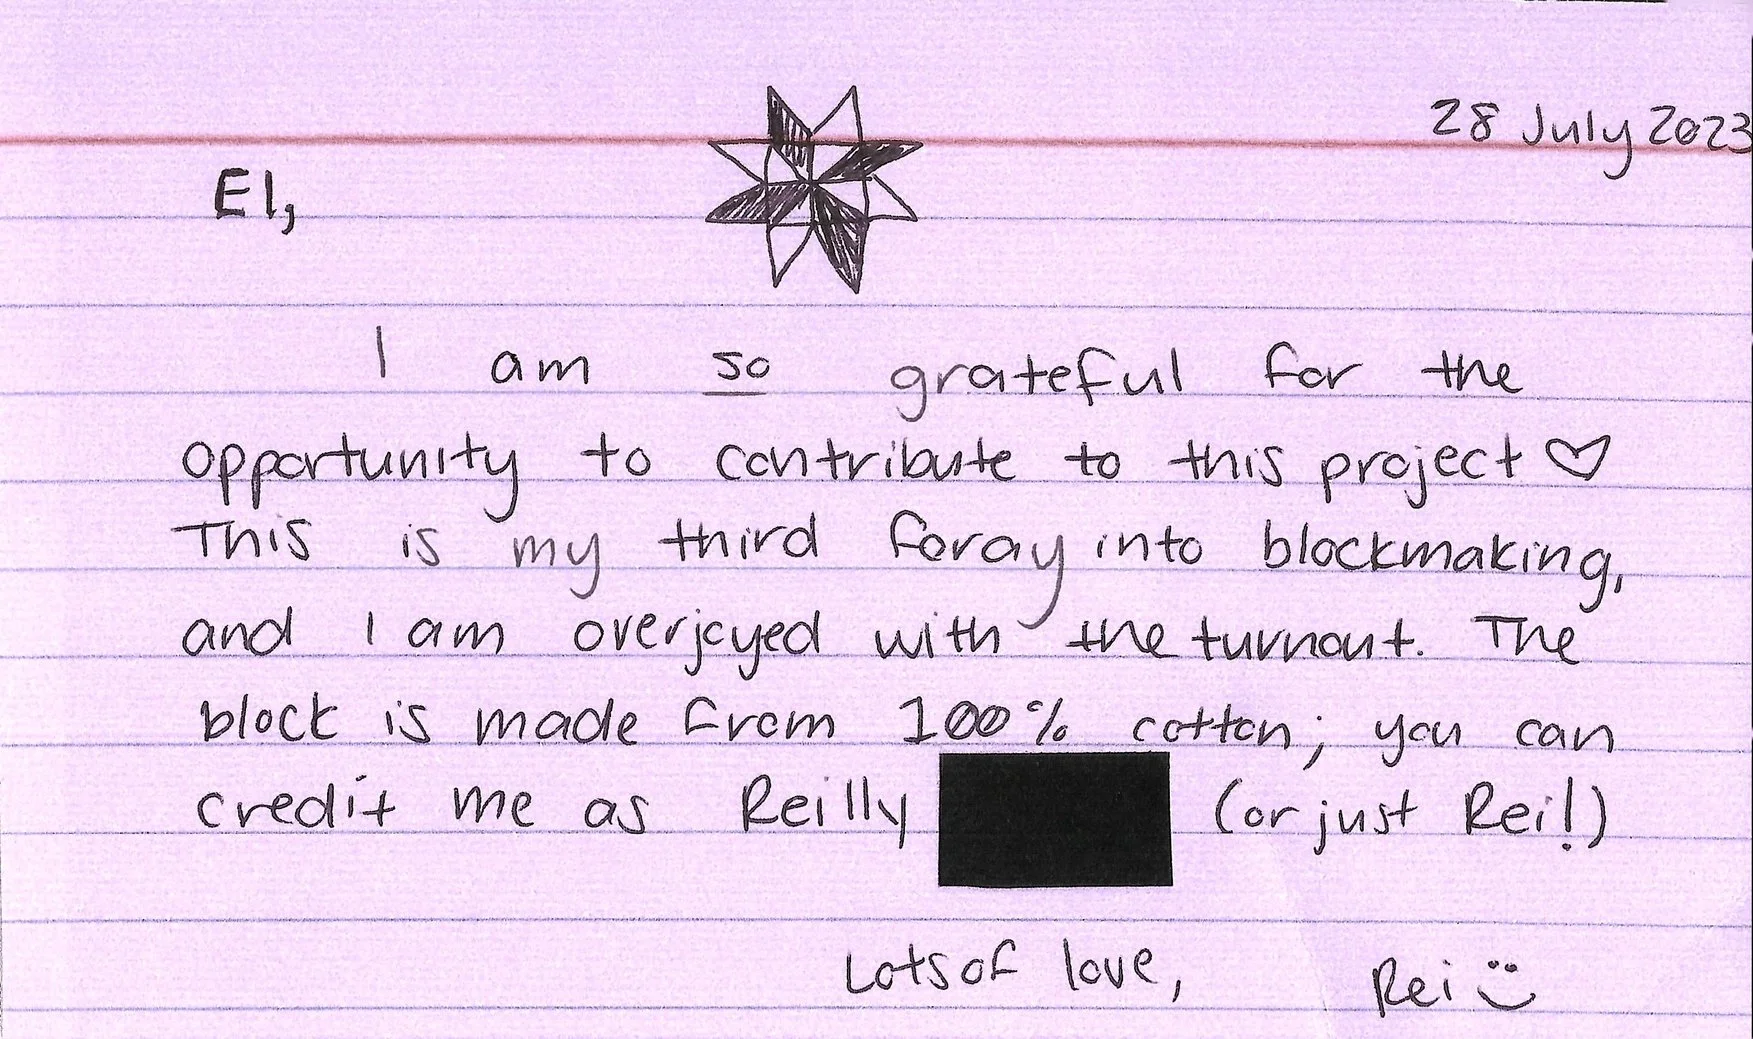 28 July 2023
El,
I am so grateful for the
opportunity to contribute to this project ♡
This is my third foray into blockmaking,
and I am overjoyed with the turnout. The
block is made from 100% cotton; you can
credit me as Reilly (or just Rei!)
Lots of love, Rei